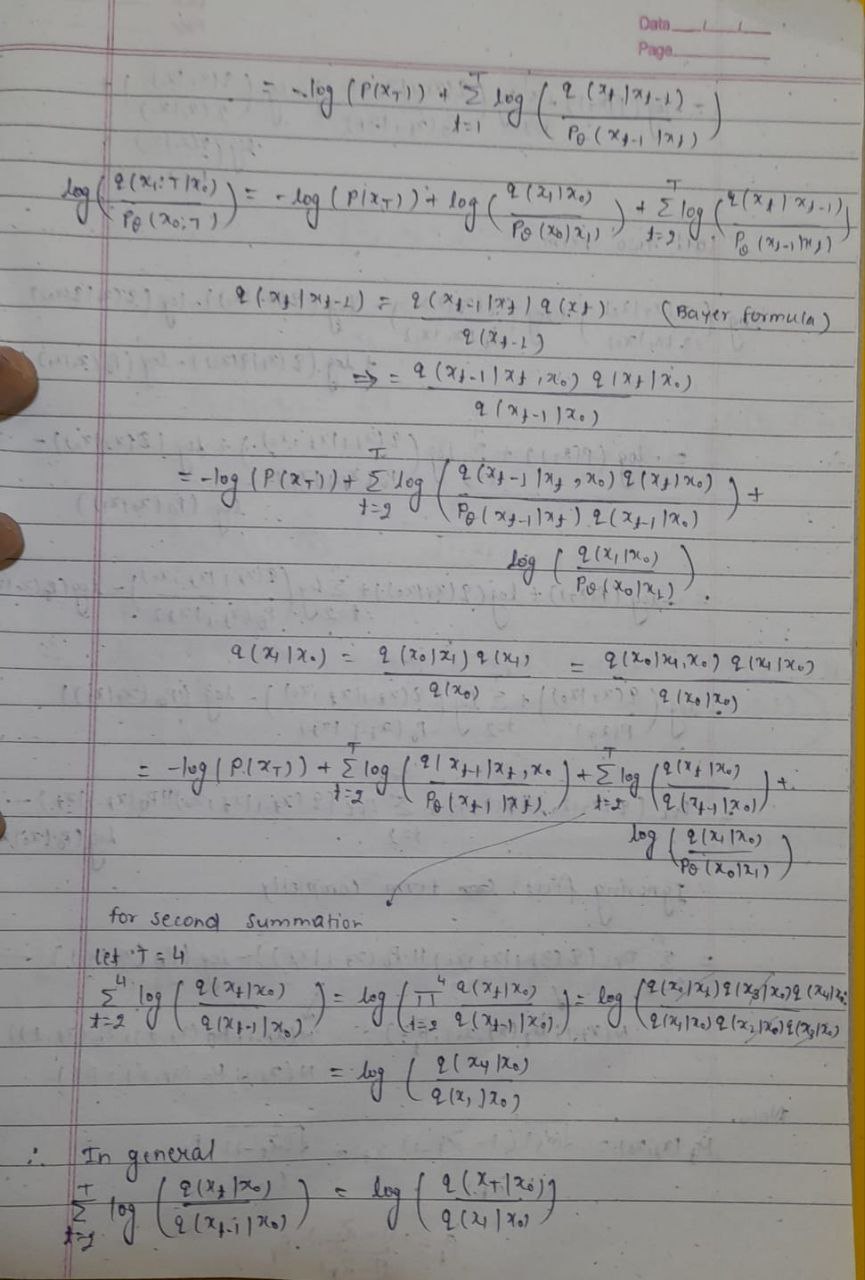 Date / /
Page
= -log (P(x_T)) + Σ_{t=1}^{T} log ( q(x_t|x_{t-1}) / P_θ(x_{t-1}|x_t) )
log( q(x_{1:T}|x_0) / P_θ(x_{0:T}) ) = -log (P(x_T)) + log ( q(x_1|x_0) / P_θ(x_0|x_1) ) + Σ_{t=2}^{T} log ( q(x_t|x_{t-1}) / P_θ(x_{t-1}|x_t) )
q(x_t|x_{t-1}) = q(x_{t-1}|x_t) q(x_t) / q(x_{t-1}) (Bayer formula)
⇒ = q(x_{t-1}|x_t, x_0) q(x_t|x_0) / q(x_{t-1}|x_0)
= -log (P(x_T)) + Σ_{t=2}^{T} log ( q(x_{t-1}|x_t, x_0) q(x_t|x_0) / P_θ(x_{t-1}|x_t) q(x_{t-1}|x_0) ) +
log ( q(x_1|x_0) / P_θ(x_0|x_1) ) .
q(x_1|x_0) = q(x_0|x_1) q(x_1) / q(x_0) = q(x_0|x_1, x_0) q(x_1|x_0) / q(x_0|x_0)
= -log (P(x_T)) + Σ_{t=2}^{T} log ( q(x_{t-1}|x_t, x_0 / P_θ(x_{t-1}|x_t) ) + Σ_{t=2}^{T} log ( q(x_t|x_0) / q(x_{t-1}|x_0) ) +
log ( q(x_1|x_0) / P_θ(x_0|x_1) )
for second summation
let T = 4
Σ_{t=2}^{4} log ( q(x_t|x_0) / q(x_{t-1}|x_0) ) = log ( Π_{t=2}^{4} q(x_t|x_0) / q(x_{t-1}|x_0) ) = log ( q(x_2|x_0) q(x_3|x_0) q(x_4|x_0 / q(x_1|x_0) q(x_2|x_0) q(x_3|x_0)
= log ( q(x_4|x_0) / q(x_1|x_0)
∴ In general
Σ_{t=2}^{T} log ( q(x_t|x_0) / q(x_{t-1}|x_0) ) = log ( q(x_T|x_0) / q(x_1|x_0) )